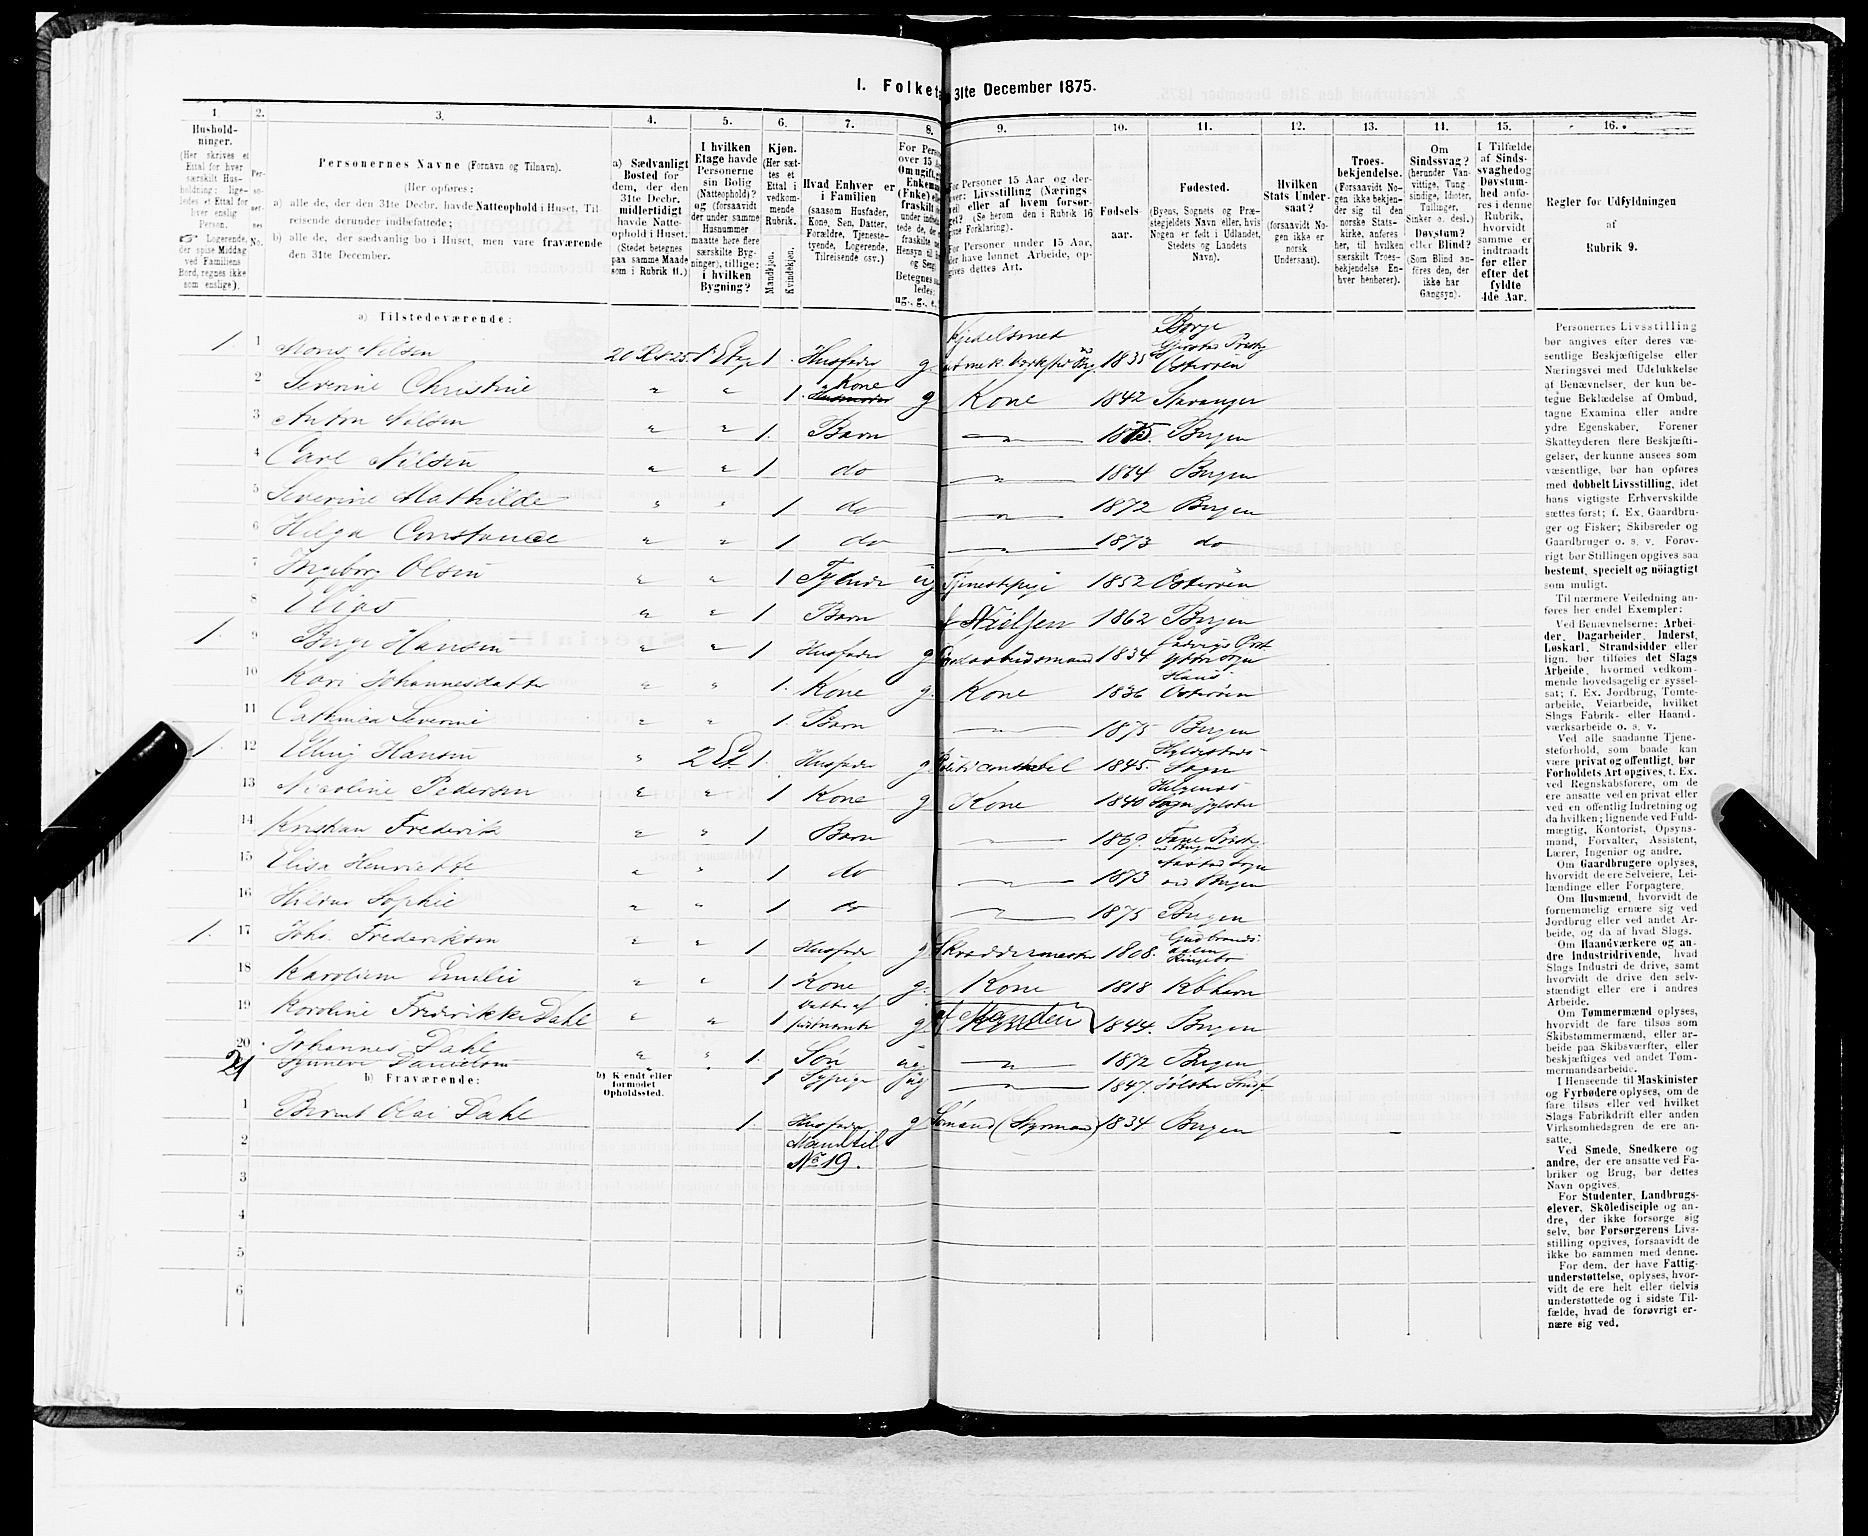 I. Folketa 31te December 1875.
1. 2. 3. 4. 5. 6. 7. 8. 9. 10. 11. 12. 13. 14. 15. 16.
Hushold-
ninger.
(Her skrives et
Ettal for hver
særskilt Hus-
holdning; lige-
ledes et Ettal for
hver enslig
Person.
☞ Logerende,
der spise Middag
ved Familiens
Bord, regnes ikke
som enslige).
Per-
so-
ner-
nes
No.
Personernes Navne (Fornavn og Tilnavn).
(Her opføres:
a) alle de, der den 31te Decbr. havde Natteophold i Huset, Til-
reisende derunder indbefattede;
b) alle de, der sædvanlig bo i Huset, men vare fraværende
den 31te December.
a) Sædvanligt
Bosted for
dem, der den
31te Decbr.
midlertidigt
havde Natte-
ophold i Huset.
(Stedet betegnes
paa samme Maade
som i Rubrik 11.)
I hvilken
Etage havde
Personerne
sin Bolig
(Natteophold)?
og (forsaavidt
der under samme
Husnummer
maatte høre flere
særskilte Byg-
ninger), tillige:
i hvilken
Bygning?
Kjøn.
(Her sæt-
tes et
Ettal i
vedkom-
mende
Rubrik.
Mandkjøn.
Kvindekjøn.
Hvad Enhver er
i Familien
(saasom Husfader,
Kone, Søn, Datter,
Forældre, Tjeneste-
tyende, Logerende,
Tilreisende osv.)
For Perso
over 15 A
Om ugift, g
Enkema
(Enke) el
fraskilt
Betegnes s
ledes:
ug., g., e.
For Personer 15 Aar og der-
over: Livsstilling (Nærings
vei)
eller af hvem forsør-
get? (Se herom den i Rubrik 16
givne Forklaring).
For Personer under 15 Aar,
der have lønnet Arbeide, op-
gives dettes Art.
Fødsels-
aar.
Fødested.
(Byens, Sognets og Præ-
stegjeldets Navn eller, hvis
Nogen er født i Udlandet,
Stedets og Landets
Navn).
Hvilken
Stats Under-
saat?
(forsaavidt No-
gen ikke er
norsk
Undersaat).
Troes-
bekjendelse.
(Forsaavidt No-
gen ikke bekjen-
der sig til den
norske Stats-
kirke, anføres
her, til hvilken
særskilt Troes-
bekjendelse En-
hver henhører).
Om
Sindssvag?
(herunder Van-
vittige, Tung-
sindige, Idioter,
Tullinger,
Sinker o. desl.)
Døvstum?
eller Blind?
(Som Blind an-
føres den, der
ikke har
Gangsyn).
I Tilfælde
af Sinds-
svaghed og
Døvstum-
hed anfø-
res i denne
Rubrik,
hvorvidt
samme er
indtraadt
før eller
efter det
fyldte
4de Aar.
Regler for Udfyldningen
af
Rubrik 9.
a) Tilstedeværende:
1 1 Mons Nilsen 1 Etage 1. Husfader g. Kjedelsmed 1835 Osterøen
2 Severine Christine " " 1. Kone g Kone 1842 Stavanger
3 Anton Nilsen " " 1. Barn 1875. Bergen
4 Carl Nilsen " " 1 do 1874 Bergen
5 Severine Mathilde " " 1 do 1872 Bergen
6 Helga Constance " " 1 do 1873 do
7 Ingeborg Olsen " " 1 ug Tjenestepige 1852 Osterøen
8 Elias " " 1 Barn Nielsen 1862 Bergen
1. 9 Berge Hansen " " 1 Husfader g 1834
10 Kari Johannesdatter " " 1. Kone g. Kone 1836 Osterøen
11 Cathinca Severine " " 1. Barn 1875 Bergen
1. 12 Elling Hansen " 2 Et. 1. Husfader g Politiconstabel 1845. Sogn
13 Nicoline Pedersen " " 1 Kone g Kone 1840 Sogn
14 Kristian Frederik " " 1 Barn 1869. Fane
15 Elisa Henriette " " 1 do 1873 ved Bergen
16 Hilda Sophie " " 1 do 1875 Bergen
1. 17 Johs. Frederiksen " " 1 Husfader g Skræddermester 1808. Gudbrands-
dalen
Ringebo
18 Karoline Emilie " " 1 Kone g. Kone 1818 Kbhavn
19 Karoline Frederikke Dahl " " 1 Datter af g. af Manden 1844. Bergen
20 Johannes Dahl " " 1. Søn ug 1872 Bergen
21 Synneve Danielsen 1 Sypige ug 1847. Jølster
b) Fraværende:
b) Kjendt eller
formodet
Opholdssted.
1 Bernt Olai Dahl 1. Husfader g Sømand (Styrmand) 1834 Bergen
2 Mand til
No 19.
3
4
5
6
Personernes Livsstilling
bør angives efter deres væ-
sentlige Beskjæftigelse eller
Næringsvei med Udelukkelse
af Benævnelser, der kun be-
tegne Beklædelse af Ombud,
tagne Examina eller andre
ydre Egenskaber. Forener
Skatteyderen flere Beskjæfti-
gelser, der kunne ansees som
væsentlige, bør han opføres
med dobbelt Livsstilling, idet
hans vigtigste Erhvervskilde
sættes først; f. Ex. Gaardbru-
ger og Fisker; Skibsreder og
Gaardbruger o. s. v. Forøv-
rigt bør Stillingen opgives saa
bestemt, specielt og nøiagtigt
som muligt.
Til nærmere Veiledning an-
føres her endel Exempler:
Ved Benævnelserne: Arbei-
der, Dagarbeider, Inderst,
Løskarl, Strandsidder eller
lign. bør tilføies det Slags
Arbeide, hvormed vedkom-
mende hovedsagelig er syssel-
sat; f. Ex. Jordbrug, Tomte-
arbeide, Veiarbeide, hvilket
Slags Fabrik- eller Haand-
værksarbeide o. s. v.
Ved alle saadanne Tjene-
steforhold, som baade kan
være privat og offentligt, bør
Forholdets Art opgives, t. Ex.
ved Regnskabsførere, om de
ere ansatte ved en privat eller
ved en offentlig Indretning og
da hvilken; lignende ved Fuld-
mægtig, Kontorist, Opsyns-
mand, Forvalter, Assistent,
Lærer, Ingeniør og andre.
Om Gaardbrugere oplyses,
hvorvidt de ere Selveiere, Lei-
lændinge eller Forpagtere.
Om Husmænd, hvorvidt de
fornemmelig ernære sig ved
Jordbrug eller ved andet Ar-
beide, og da af hvad Slags.
Om Haandværkere og an-
dre Industridrivende, hvad
Slags Industri de drive, samt
hvorvidt de drive den selv-
stændigt eller ere i andres
Arbeide.
Om Tømmermænd oplyses,
hvorvidt de fare tilsøs som
Skibstømmermænd, eller ar-
beide paa Skibsværfter, eller
beskjæftiges ved andet Tøm-
mermandsarbeide.
I Henseende til Maskinister
og Fyrbødere oplyses, om de
fare tilsøs eller ved hvilket
Slags Fabrikdrift eller anden
Virksomhedsgren de ere an-
satte.
Ved Smede, Snedkere og
andre, der ere ansatte ved Fa-
briker og Brug, bør dettes
Navn opgives.
For Studenter, Landbrugs-
elever, Skoledisciple og an-
dre, der ikke forsørge sig
selv, bør Forsørgerens Livs-
stilling opgives, forsaavidt de
ikke bo sammen med denne.
For dem, der have Fattig-
understøttelse, oplyses, hvor-
vidt de ere helt eller delvis
understøttede og i sidste Til-
fælde, hvad de forøvrigt er-
nære sig ved.